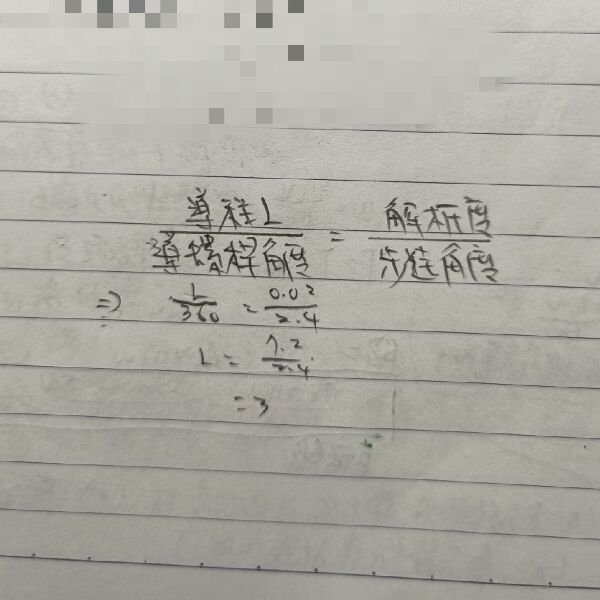 導程L / 導螺桿角度 = 解析度 / 步進角度
⇒ L/360 = 0.02/2.4
L = 7.2/2.4
= 3